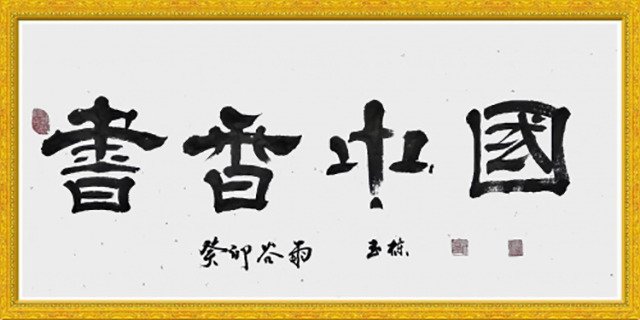 書香中國
癸卯谷雨 玉栋